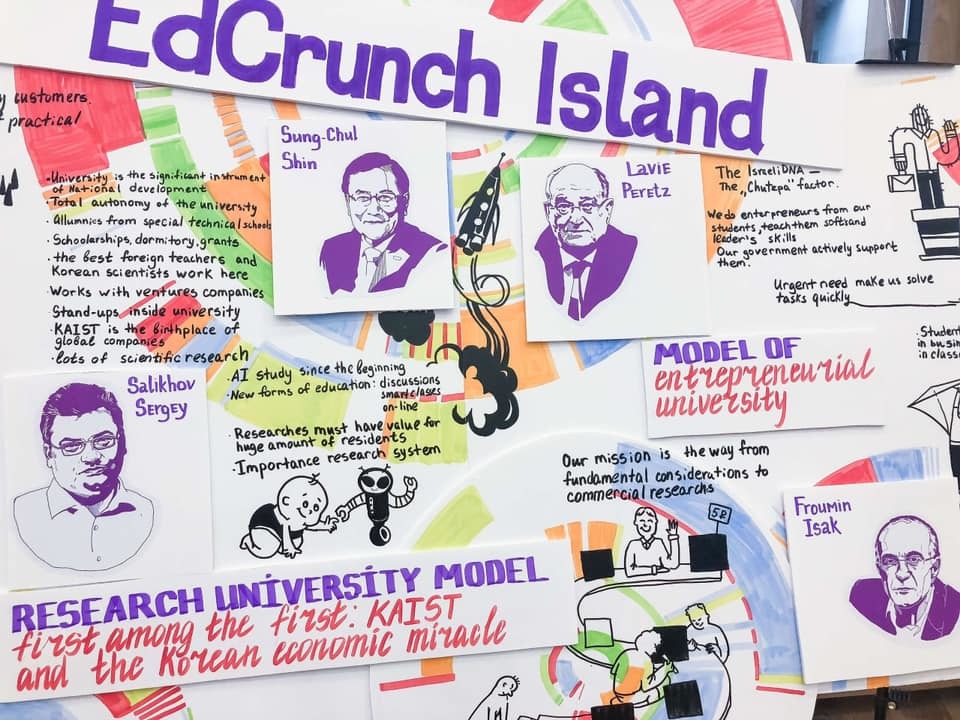 EdCrunch Island
y customers.
f practical
Sung-Chul
Shin
Lavie
Peretz
-University is the significant instrument
of National development
- Total autonomy of the university
· Allumnies from special technical schools
· Schoolarships, dormitory, grants
· the best foreign teachers and
Korean scientists work here
· Works with ventures companies
· Stand-ups inside university
· KAIST is the birthplace of
global companies
· lots of scientific research
The Israeli DNA —
The „Chutzpa" factor.
We do enterpreneurs from our
students, teach them softs and
leader's skills
Our government actively support
them.
Urgent need make us solve
tasks quickly
· Student
in busin
in class
MODEL OF
entrepreneurial
university
Salikhov
Sergey
· AI study since the beginning
· New forms of education: discussions
smart classes
on-line
· Researches must have value for
huge amount of residents
· Importance research system
Our mission is the way from
fundamental considerations to
commercial researchs
Froumin
Isak
RESEARCH UNIVERSITY MODEL
first among the first: KAIST
and the Korean economic miracle